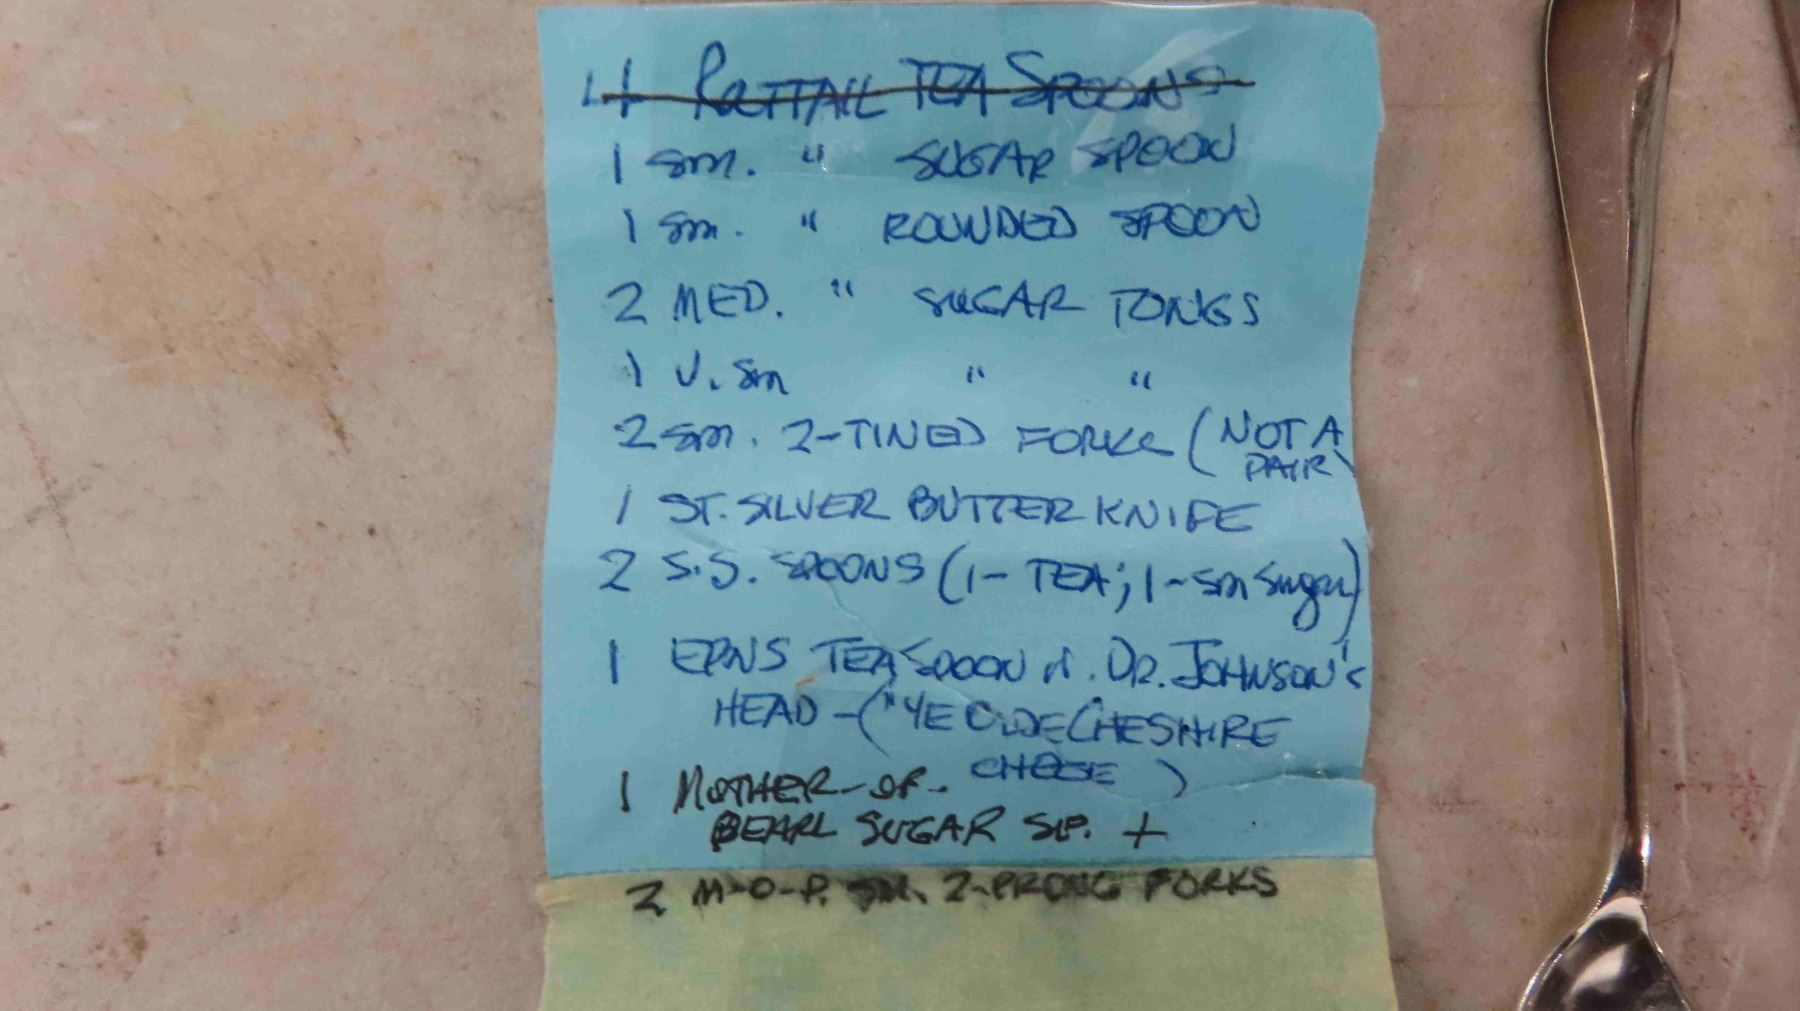 4 RATTAIL TEA SPOONS
1 sm. " SUGAR SPOON
1 sm. " ROUNDED SPOON
2 MED. " SUGAR TONGS
1 V. sm " "
2 sm. 2-TINED FORKS (NOT A
PAIR)
1 ST. SILVER BUTTER KNIFE
2 S.S. SPOONS (1- TEA; 1-sm sugar)
1 EPNS TEASPOON w. DR. JOHNSON's
HEAD - ("YE OLDE CHESHIRE
CHEESE )
1 MOTHER-OF-
PEARL SUGAR SP. +
2 M-O-P. SM. 2-PRONG FORKS